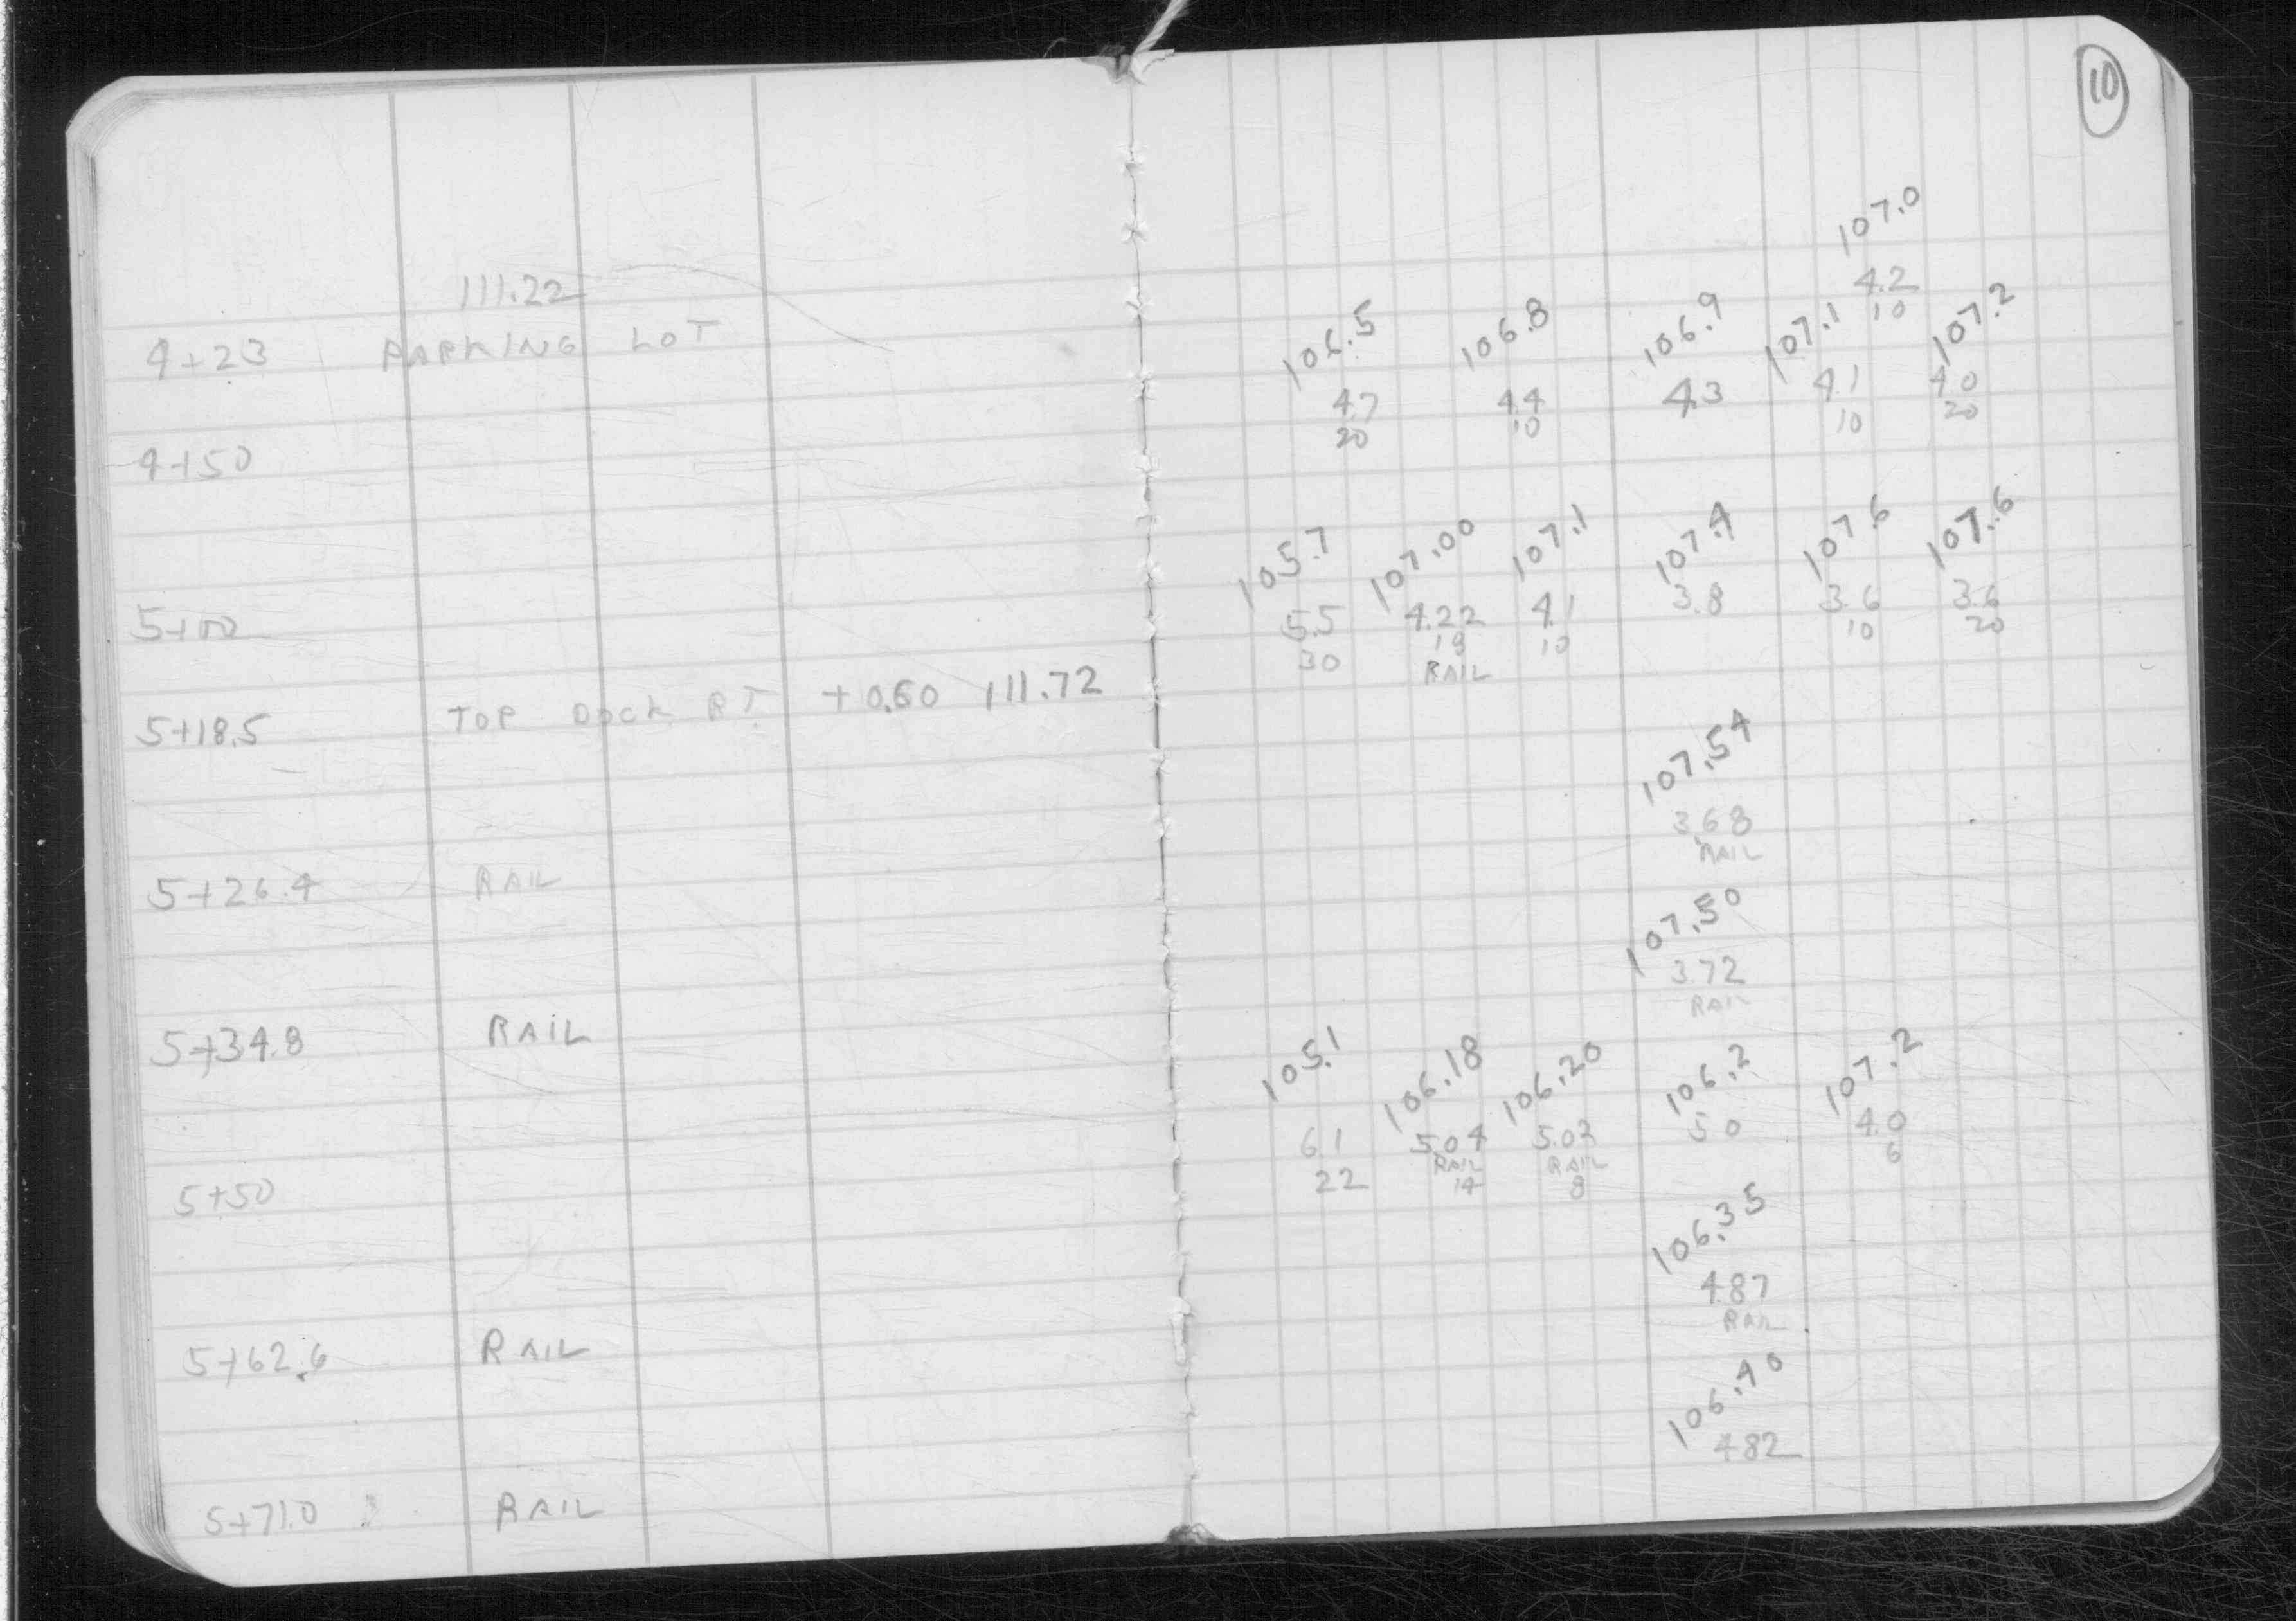 10
111.22
4+23 PARKING LOT
107.0
4.2
10
106.5 106.8 106.9 107.1 107.2
4.7 4.4 4.3 4.1 4.0
20 10 10 20
4+50
105.7 107.00 107.1 107.4 107.6 107.6
5.5 4.22 4.1 3.8 3.6 3.6
30 19 10 10 20
RAIL
5+00
5+18.5 TOP DOCK RT. +0.50 111.72
107.54
3.68
RAIL
5+26.4 RAIL
107.50
3.72
RAIL
5+34.8 RAIL
105.1 106.18 106.20 106.2 107.2
6.1 5.04 5.02 5.0 4.0
RAIL RAIL
22 14 8 6
5+50
106.35
4.87
RAIL
5+62.6 RAIL
106.40
4.82
5+71.0 RAIL